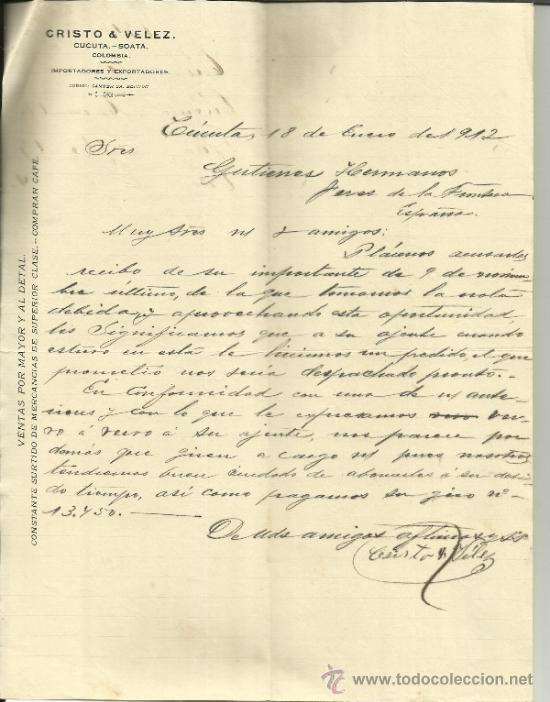 CRISTO & VELEZ.
CUCUTA.-SOATA.
COLOMBIA.
IMPORTADORES Y EXPORTADORES.
VENTAS POR MAYOR Y AL DETAL.
CONSTANTE SURTIDO DE MERCANCIAS DE SUPERIOR CLASE.-COMPRAN CAFE.
Cúcuta, 18 de Enero de 1912
Sres
Gutierres Hermanos
Jeres de la Frontera
España.
Muy Sres ns y amigos:
Plácenos acusarles
recibo de su importante de 9 de noviem-
bre último, de la que tomamos la nota
debida, y aprovechando esta oportunidad,
les significamos que a su ajente cuando
estuvo en esta le hicimos un pedido, el que
prometió nos sería despachado pronto.-
En conformidad con una de ns ante-
riores y con lo que le expresamos vi-
va á vivo á su ajente, nos parece por
demás que giren a cargo ns pues nosotros
tendremos buen cuidado de abonarles á su debi-
do tiempo, así como pagamos su giro nº-
13.450.-
De Uds amigos afmos y SS
Cristo & Vélez
www.todocoleccion.net